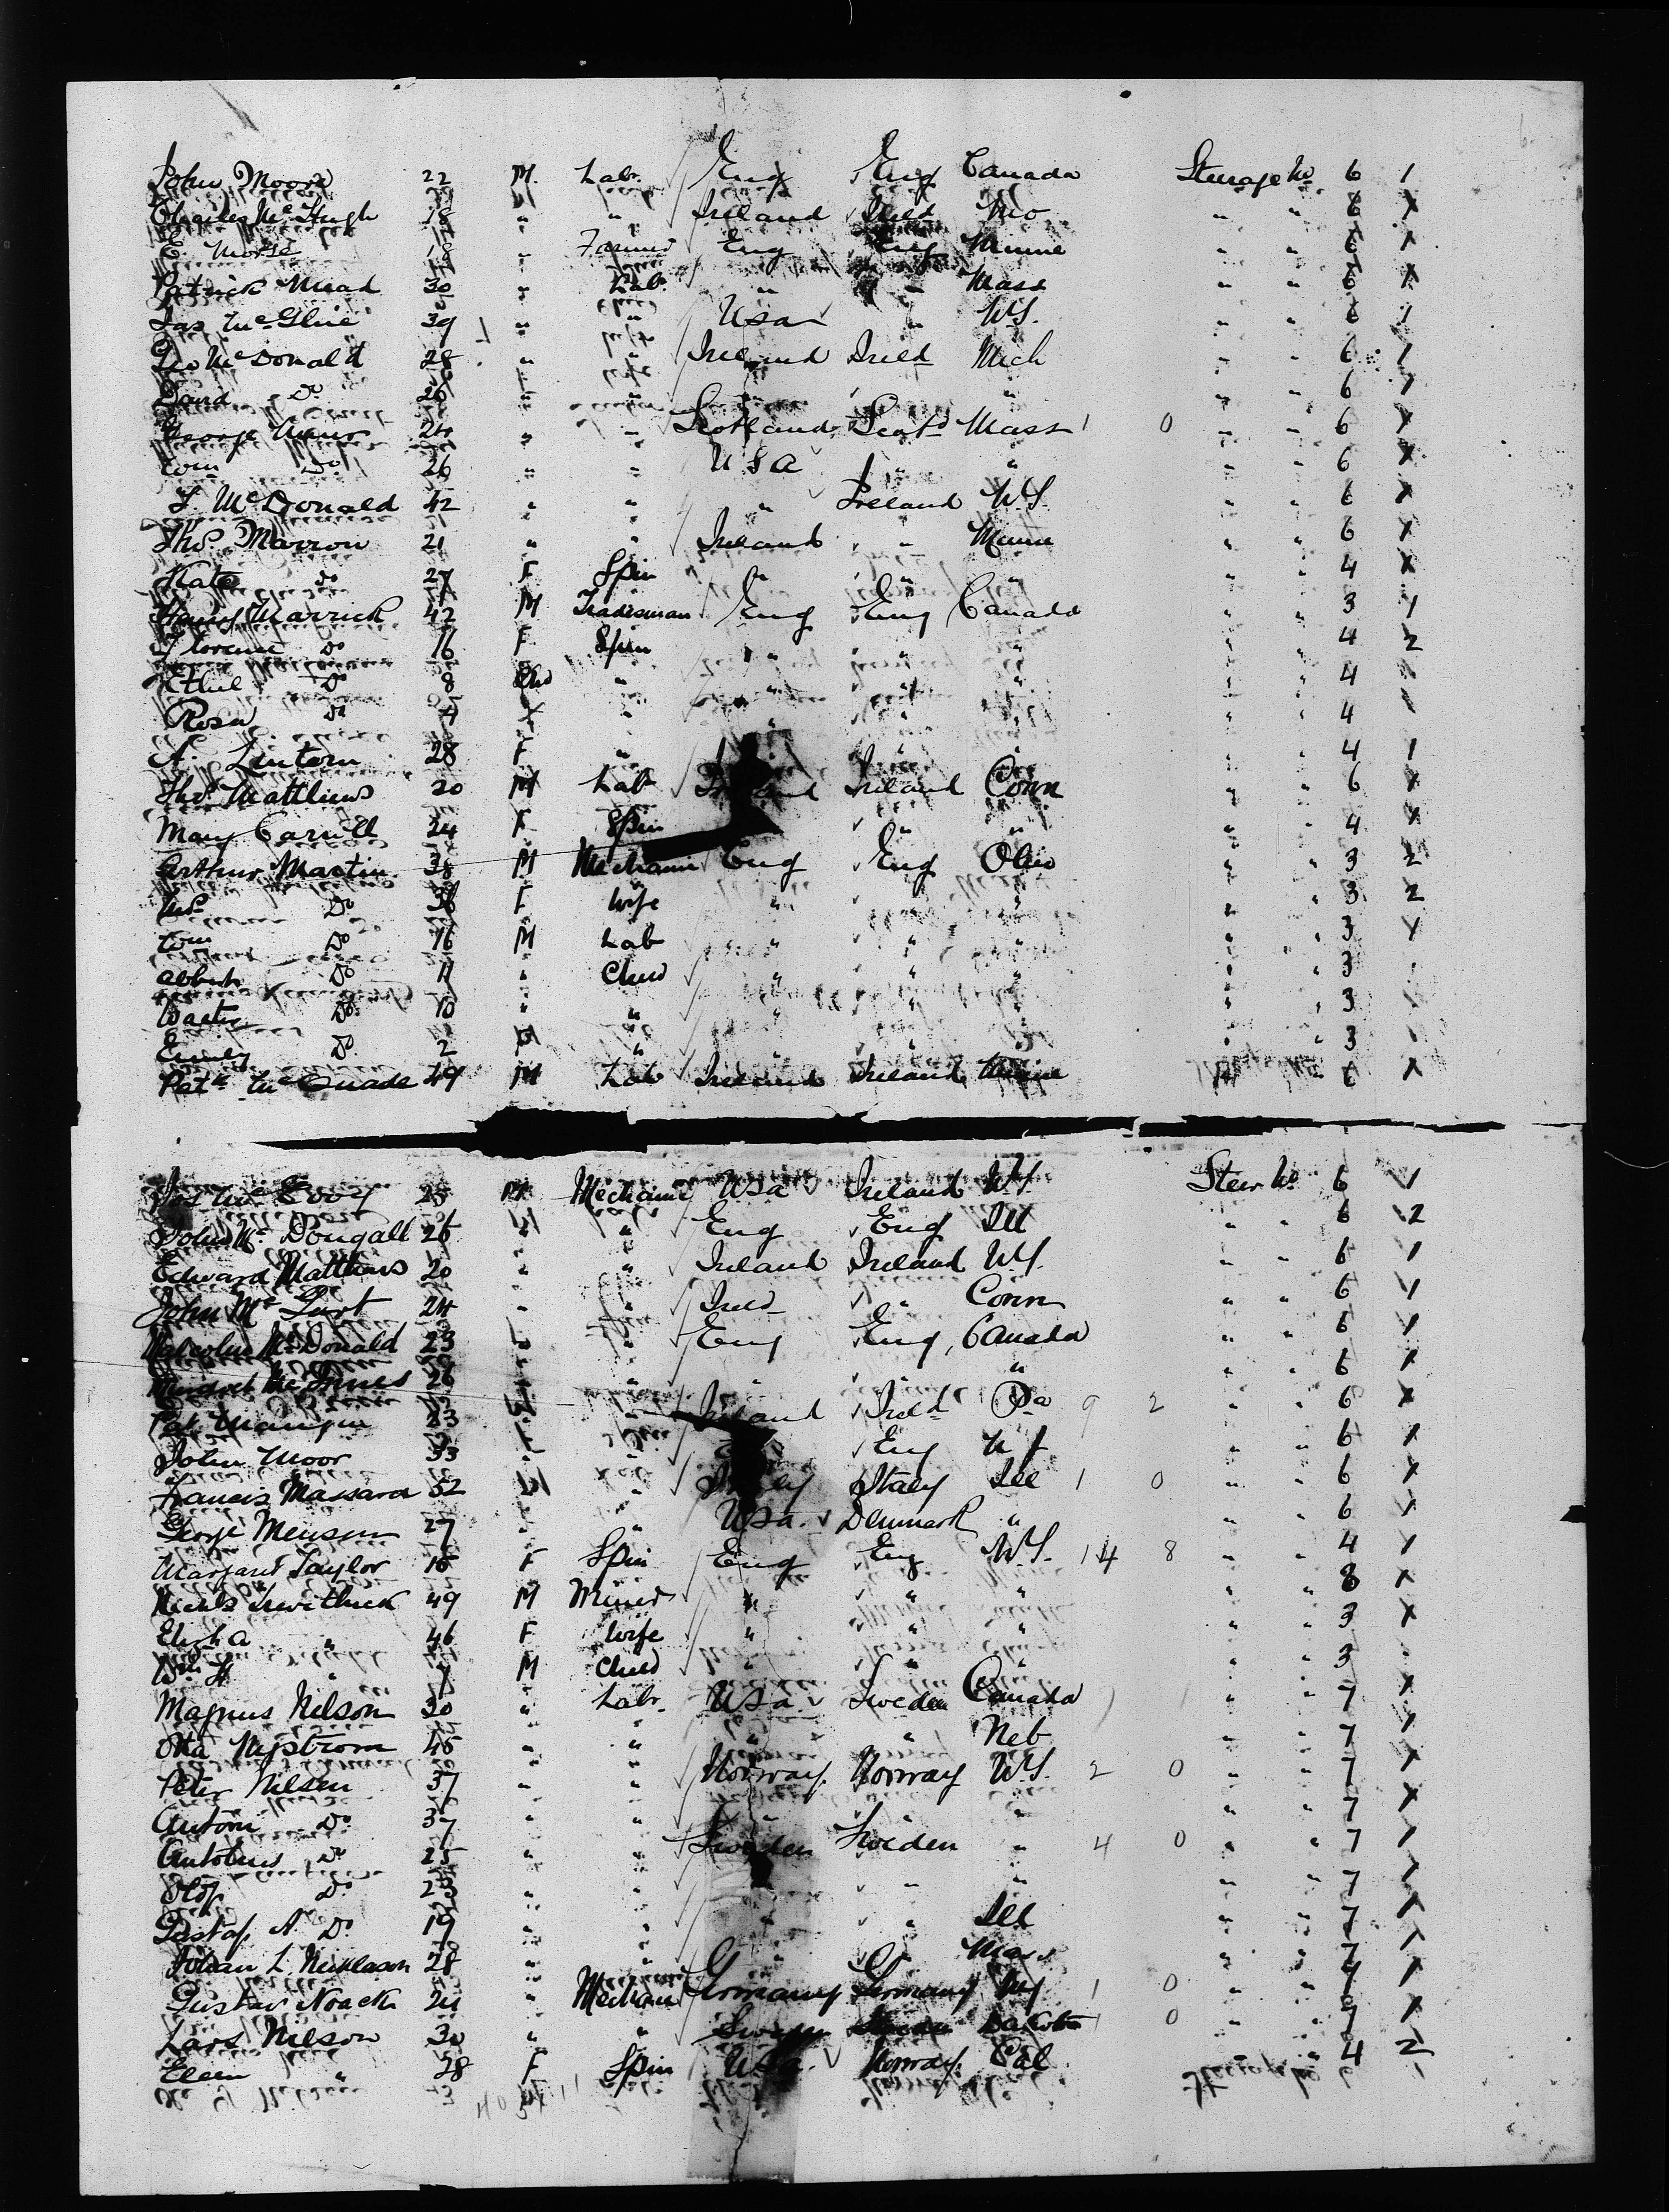 John Moore 22 M. Lab. Eng Eng Canada Steerage No 6 1
Charles McHugh 18 " " Ireland Ireld Mo " " 6 1
E. Morse 18 " Farmer Eng Eng Minne " " 6 1
Patrick Mead 30 " Lab. " " Mass " " 6 1
Jas McGlue 39 " " Usa " N.Y. " " 6 1
Geo McDonald 28 " " Ireland Ireld Mich " " 6 1
David Do 26 " " " " " " " 6 1
George 24 " " Scotland Scotd Mass 1 0 " " 6 1
Tom Do 26 " " USA " " " " 6 1
McDonald 42 " " " Ireland N.Y. " " 6 1
Thos Marron 21 " " Ireland " Minne " " 6 1
Kate Do 27 F Spin " " " " " 4 1
Henry Marrick 42 M Tradesman Eng Eng Canada " " 3 1
Florence Do 16 F Spin " " " " " 4 2
Ethel Do 8 Chd " " " " " " 4
Rosa Do 4 " " " " " " 4
A. Lintern 28 F " " " " " " 4 1
Thos Matthews 20 M Lab Ireland Ireland Conn " " 6 1
Mary Carvill 24 F Spin " " " " " 4 1
Arthur Martin 38 M Mechanic Eng Eng Ohio " " 3 2
Mrs Do 38 F Wife " " " " " 3 2
Tom Do 16 M Lab " " " " " 3 1
Do 11 " Child " " " " " 3
Walter Do 10 " " " " " " " 3
Emily Do 2 " " " " " " 3
Patk McQuade 49 M Lab Ireland Ireland " 6 1
Jos McEvoy 25 M Mechanic Usa Ireland N.Y. Steer No 6 1
John McDougall 26 " " Eng Eng Ill " " 6 2
Edward Matthews 20 " " Ireland Ireland N.Y. " " 6 1
John McGurt 24 " " Ireld " Conn " " 6 1
Malcolm McDonald 23 " " Eng Eng Canada " " 6 1
McInnes 26 " " " " " " " 6 1
Pat 23 " " Ireland Ireld Pa 9 2 " " 6 1
John Moor 33 " " Eng N J " " 6 1
Francis Massara 52 " " Italy Italy Ill 1 0 " " 6 1
George Menson 27 " " Usa Denmark " " " 6 1
Margaret Taylor 18 F Spin Eng Eng N.Y. 14 8 " " 4 1
Trewithick 49 M Miner " " " " " 8 1
Elizh A " 46 F Wife " " " " " 3 1
Wm H " 7 M Child " " " " " 3
Magnus Nelson 30 " Labr. Usa Sweden Canada " " 7 1
Otta Nystrom 45 " " " " Neb " " 7 1
Peter Nilsen 37 " " Norway Norway N.Y. 2 0 " " 7 1
Antoni Do 37 " " " " " " " 7 1
Do 25 " " Sweden Sweden " 4 0 " " 7 1
Olof Do 23 " " " " " " " 7 1
Gustaf A. Do 19 " " " " Ill " " 7 1
Johan L. Nicklason 28 " " " " Mass " " 7 1
Gustav Noack 24 " Mechanic Germany Germany NY 1 0 " " 7 1
Lars Nelson 30 " " Sweden Dakota 1 0 " " 7 1
Eleen " 28 F Spin Usa Norway Cal " 4 2